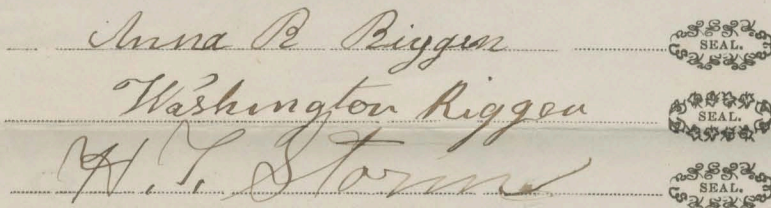 Anna B Biggen SEAL.
Washington Biggen SEAL.
H. T. Storm SEAL.